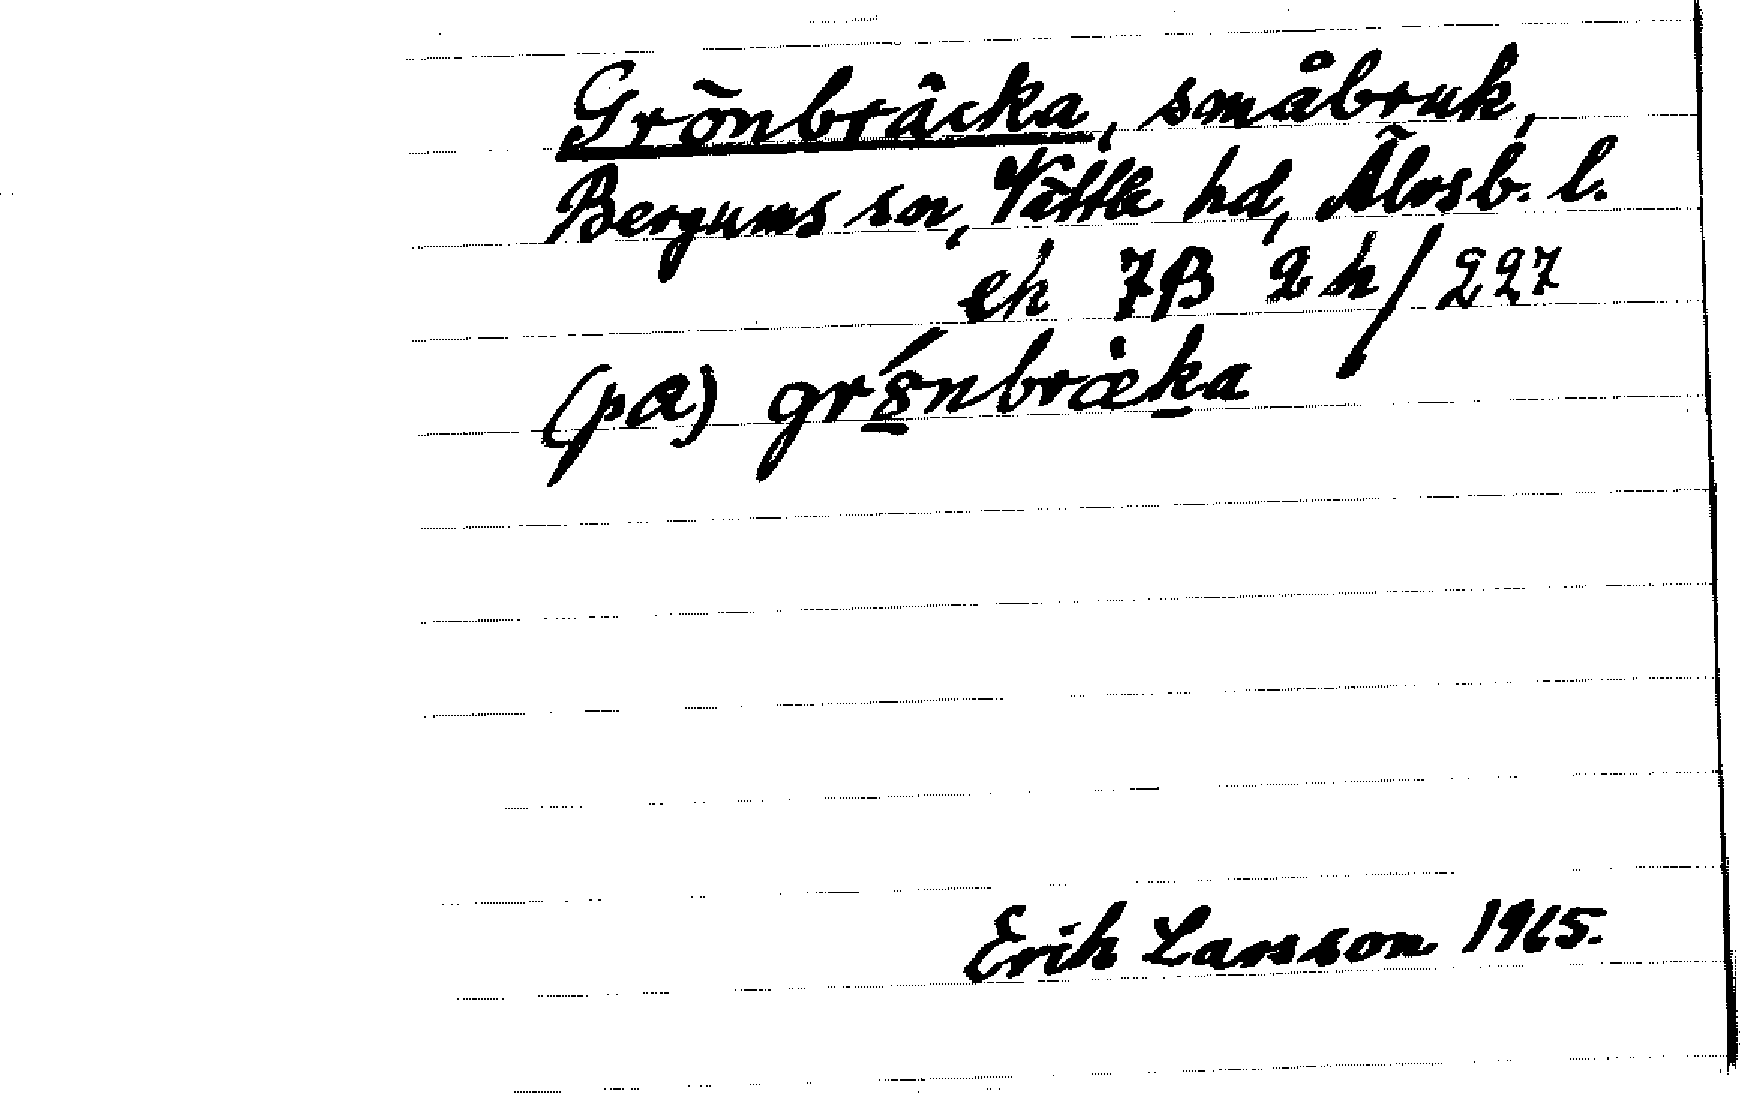 Grönbräcka, småbruk,
Bergums sn, Vättle hd, Älvsb. l.
ek 7B 2h/227
(pa) grǿnbrœ̀ka
Erik Larsson 1965.